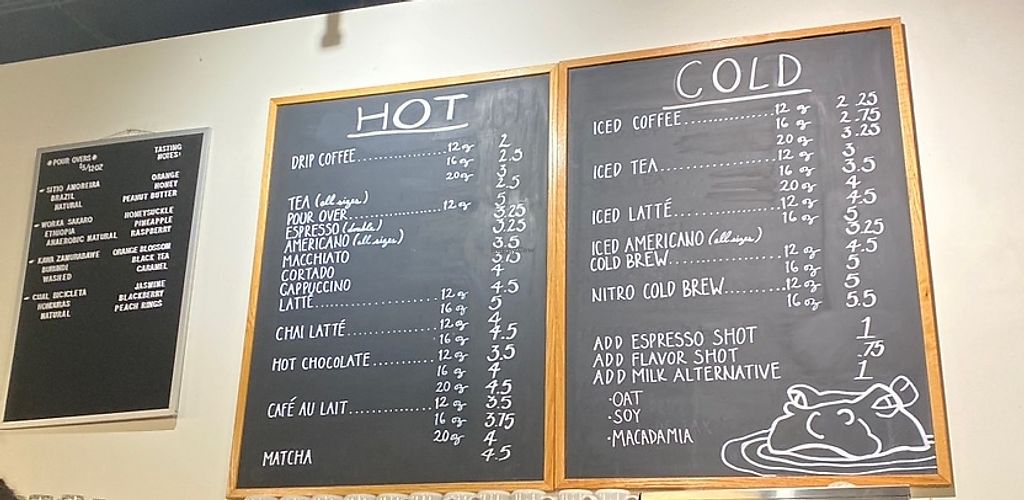 *POUR OVERS*
$5/12OZ
TASTING NOTES:
SITIO AMOREIRA ORANGE
BRAZIL HONEY
NATURAL PEANUT BUTTER
WORKA SAKARO HONEYSUCKLE
ETHIOPIA PINEAPPLE
ANAEROBIC NATURAL RASPBERRY
ORANGE BLOSSOM
BURUNDI BLACK TEA
WASHED CARAMEL
CUAL BICICLETA JASMINE
HONDURAS BLACKBERRY
NATURAL PEACH RINGS
HOT
DRIP COFFEE............12 oz 2
16 oz 2.5
20 oz 3
TEA (all sizes) 2.5
POUR OVER............12 oz 5
ESPRESSO (double) 3.25
AMERICANO (all sizes) 3.25
MACCHIATO 3.5
CORTADO 3.75
CAPPUCCINO 4
LATTÉ............12 oz 4.5
16 oz 5
CHAI LATTÉ............12 oz 4
16 oz 4.5
HOT CHOCOLATE............12 oz 3.5
16 oz 4
20 oz 4.5
CAFÉ AU LAIT............12 oz 3.5
16 oz 3.75
20 oz 4
MATCHA 4.5
COLD
ICED COFFEE............12 oz 2.25
16 oz 2.75
20 oz 3.25
ICED TEA............12 oz 3
16 oz 3.5
20 oz 4
ICED LATTÉ............12 oz 4.5
16 oz 5
ICED AMERICANO (all sizes) 3.25
COLD BREW............12 oz 4.5
16 oz 5
NITRO COLD BREW............12 oz 5
16 oz 5.5
ADD ESPRESSO SHOT 1
ADD FLAVOR SHOT .75
ADD MILK ALTERNATIVE 1
·OAT
·SOY
·MACADAMIA